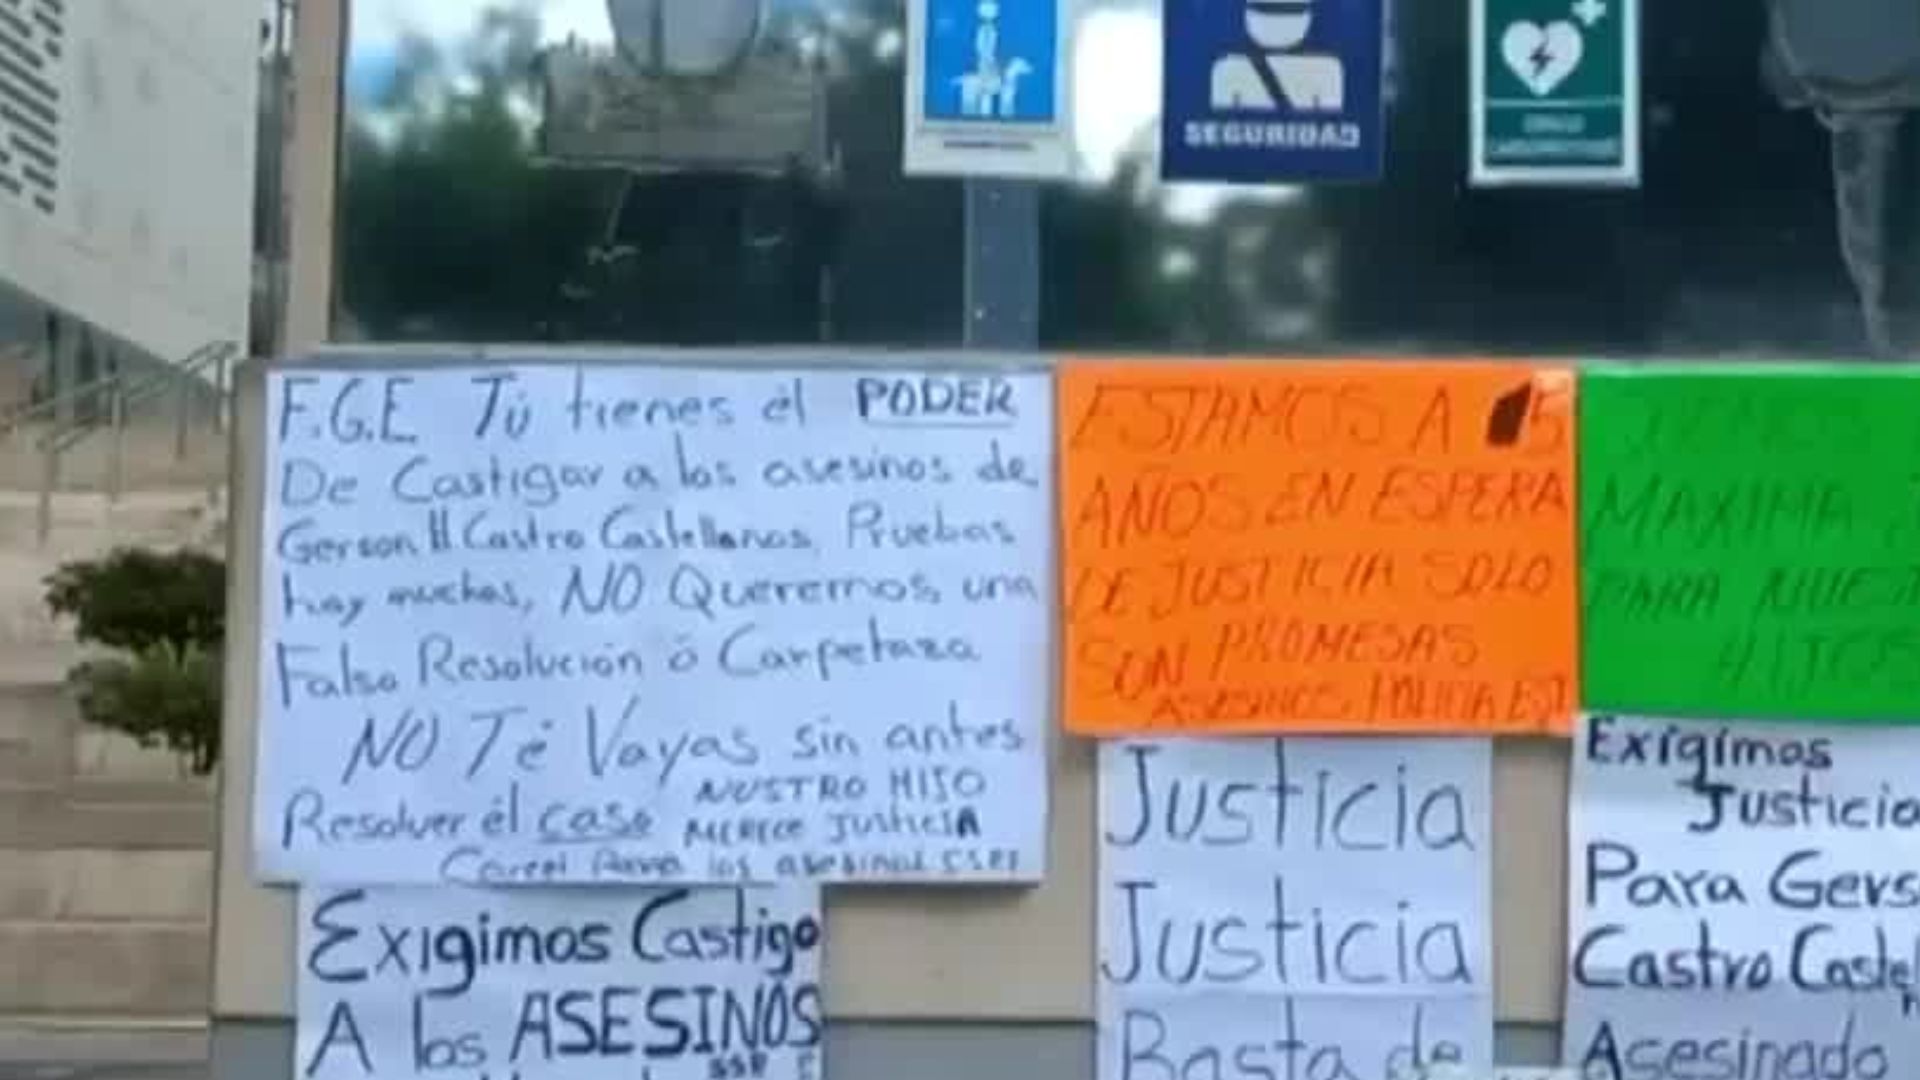 SEGURIDAD
F.G.E Tú tienes él PODER
De Castigar a los asesinos de
Gerson H. Castro Castellanos, Pruebas
hay muchas, NO Queremos una
Falsa Resolución ó Carpetaza
NO Té Vayas sin antes
Resolver él caso NUSTRO HIJO
MERECE JUSTICIA
Carcel Para los asesinos
ESTAMOS A 5
AÑOS EN ESPERA
DE JUSTICIA SOLO
SON PROMESAS
ASESINOS POLICIA EST
MAXIMA
PARA NUEST
HIJOS
Exigimos Castigo
A los ASESINOS
SSP
Justicia
Justicia
Basta de
Exigimos
Justicia
Para Gers
Castro Castel
Asesinado